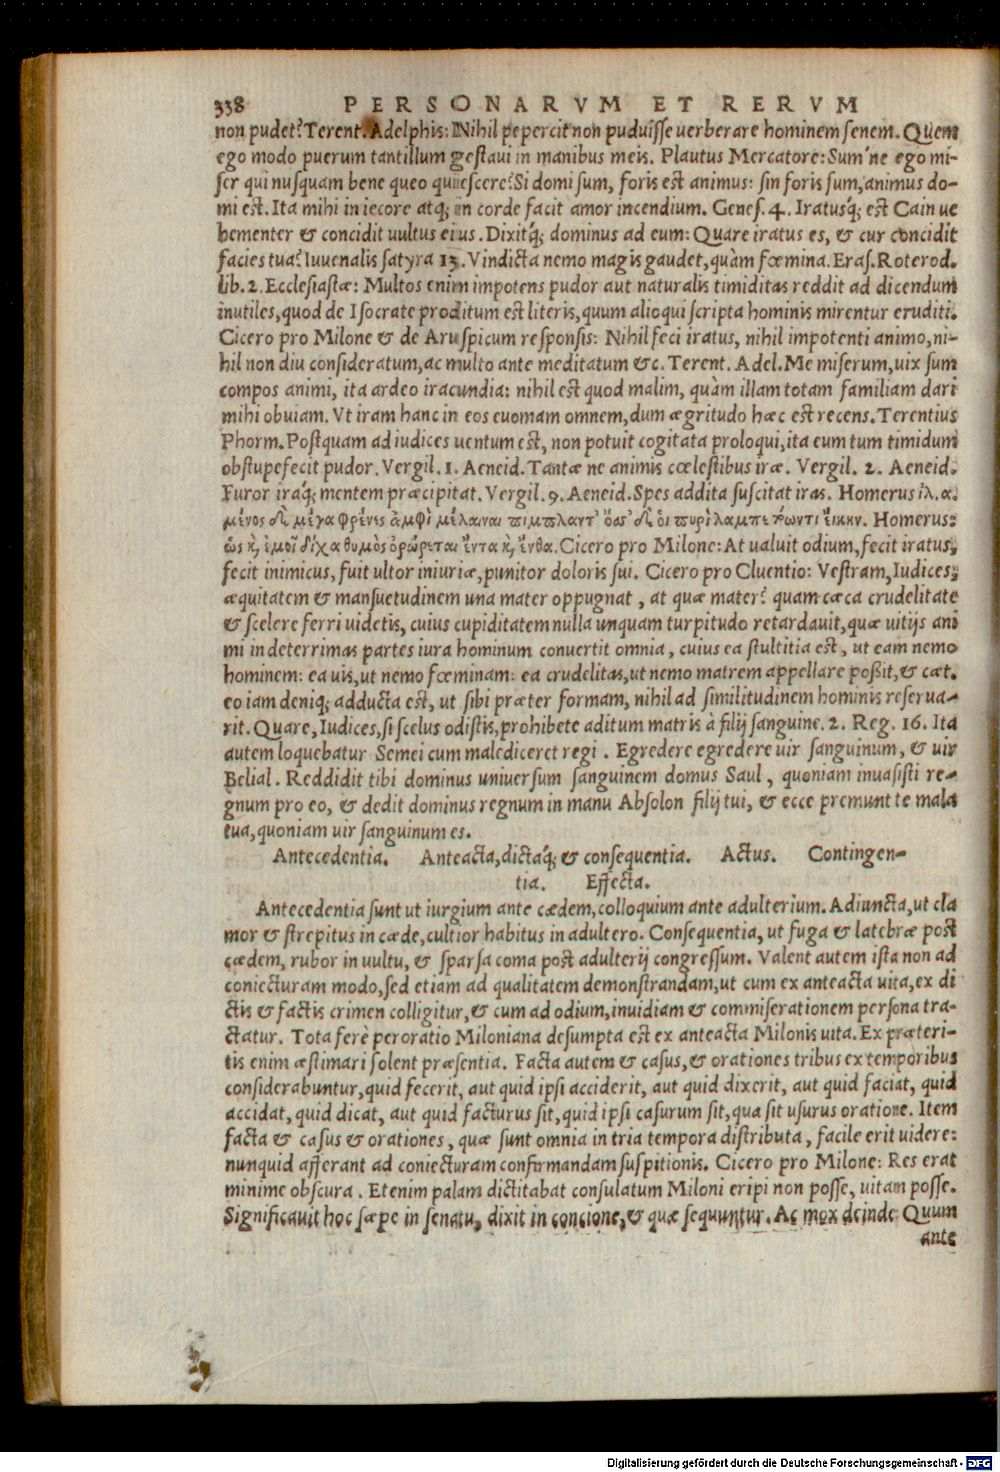 338 PERSONARVM ET RERVM
non pudet? Terent. Adelphis: Nihil pepercit non puduisse uerberare hominem senem. Quem
ego modo puerum tantillum gestaui in manibus meis. Plautus Mercatore: Sum'ne ego mi-
ser qui nusquam bene queo quiescere? Si domi sum, foris est animus: sin foris sum, animus do-
mi est. Ita mihi in iecore atq; in corde facit amor incendium. Genes. 4. Iratusq́; est Cain ue
hementer & concidit uultus eius. Dixitq́; dominus ad eum: Quare iratus es, & cur concidit
facies tua? Iuuenalis satyra 13. Vindicta nemo magis gaudet, quàm fœmina. Eras. Roterod.
lib. 2. Ecclesiastæ: Multos enim impotens pudor aut naturalis timiditas reddit ad dicendum
inutiles, quod de Isocrate proditum est literis, quum alioqui scripta hominis mirentur eruditi.
Cicero pro Milone & de Aruspicum responsis: Nihil feci iratus, nihil impotenti animo, ni-
hil non diu consideratum, ac multo ante meditatum &c. Terent. Adel. Me miserum, uix sum
compos animi, ita ardeo iracundia: nihil est quod malim, quàm illam totam familiam dari
mihi obuiam. Vt iram hanc in eos euomam omnem, dum ægritudo hæc est recens. Terentius
Phorm. Postquam ad iudices uentum est, non potuit cogitata proloqui, ita eum tum timidum
obstupefecit pudor. Vergil. 1. Aeneid. Tantæ ne animis cœlestibus iræ. Vergil. 2. Aeneid.
Furor iraq́; mentem præcipitat. Vergil. 9. Aeneid. Spes addita suscitat iras. Homerus ἰλ. α.
μένος δὲ μέγα φρένες ἀμφὶ μέλαιναι πιμπλαντ' ὄσσ' δὲ ὁι πυρὶ λαμπετόωντι ἔικην. Homerus:
ὣς κὶ ἐμοῖ δίχα θυμὸς ὀρώρεται ἔντα κὶ ἔνθα. Cicero pro Milone: At ualuit odium, fecit iratus,
fecit inimicus, fuit ultor iniuriæ, punitor doloris sui. Cicero pro Cluentio: Vestram, Iudices,
æquitatem & mansuetudinem una mater oppugnat, at quæ mater? quam cæca crudelitate
& scelere ferri uidetis, cuius cupiditatem nulla unquam turpitudo retardauit, quæ uitijs ani
mi in deterrimas partes iura hominum conuertit omnia, cuius ea stultitia est, ut eam nemo
hominem: ea uis, ut nemo fœminam: ea crudelitas, ut nemo matrem appellare poßit, & cæt.
eo iam deniq; adducta est, ut sibi præter formam, nihil ad similitudinem hominis reserua-
rit. Quare, Iudices, si scelus odistis, prohibete aditum matris à filij sanguine. 2. Reg. 16. Ita
autem loquebatur Semei cum malediceret regi. Egredere egredere uir sanguinum, & uir
Belial. Reddidit tibi dominus uniuersum sanguinem domus Saul, quoniam inuasisti re-
gnum pro eo, & dedit dominus regnum in manu Absolon filij tui, & ecce premunt te mala
tua, quoniam uir sanguinum es.
Antecedentia. Anteacta, dictaq́; & consequentia. Actus. Contingen-
tia. Effecta.
Antecedentia sunt ut iurgium ante cædem, colloquium ante adulterium. Adiuncta, ut cla
mor & strepitus in cæde, cultior habitus in adultero. Consequentia, ut fuga & latebræ post
cædem, rubor in uultu, & sparsa coma post adulterij congressum. Valent autem ista non ad
coniecturam modo, sed etiam ad qualitatem demonstrandam, ut cum ex anteacta uita, ex di
ctis & factis crimen colligitur, & cum ad odium, inuidiam & commiserationem persona tra-
ctatur. Tota ferè peroratio Miloniana desumpta est ex anteacta Milonis uita. Ex præteri-
tis enim æstimari solent præsentia. Facta autem & casus, & orationes tribus ex temporibus
considerabuntur, quid fecerit, aut quid ipsi acciderit, aut quid dixerit, aut quid faciat, quid
accidat, quid dicat, aut quid facturus sit, quid ipsi casurum sit, qua sit usurus oratione. Item
facta & casus & orationes, quæ sunt omnia in tria tempora distributa, facile erit uidere:
nunquid afferant ad coniecturam confirmandam suspitionis. Cicero pro Milone: Res erat
minime obscura. Etenim palam dictitabat consulatum Miloni eripi non posse, uitam posse.
Significauit hoc sæpe in senatu, dixit in concione, & quæ sequuntur. Ac mox deinde: Quum
ante
Digitalisierung gefördert durch die Deutsche Forschungsgemeinschaft - DFG